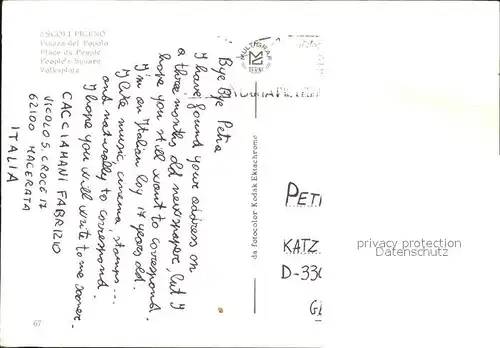 ASCOLI PICENO
Piazza del Popolo
Place du Peuple
People's Square
Volksplatz
Bye Bye Petra
I have found your address on
a three months old newspaper, but I
hope you still want to correspond.
I'm an Italian boy 17 years old.
I like music, cinema, stamps...
and naturally to correspond.
I hope you will write to me sooner.
CACCIAMANI FABRIZIO
VICOLO S. CROCE 17
62100 MACERATA
ITALIA
MULTIGRAF
TERNI
da fotocolor Kodak Ektachrome
PETR
KATZ
D-330
GE
privacy protection
Datenschutz
67